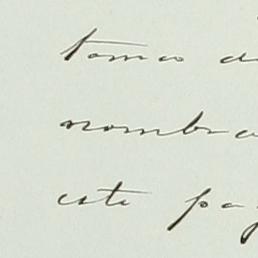 tomo d
nombra
este pa